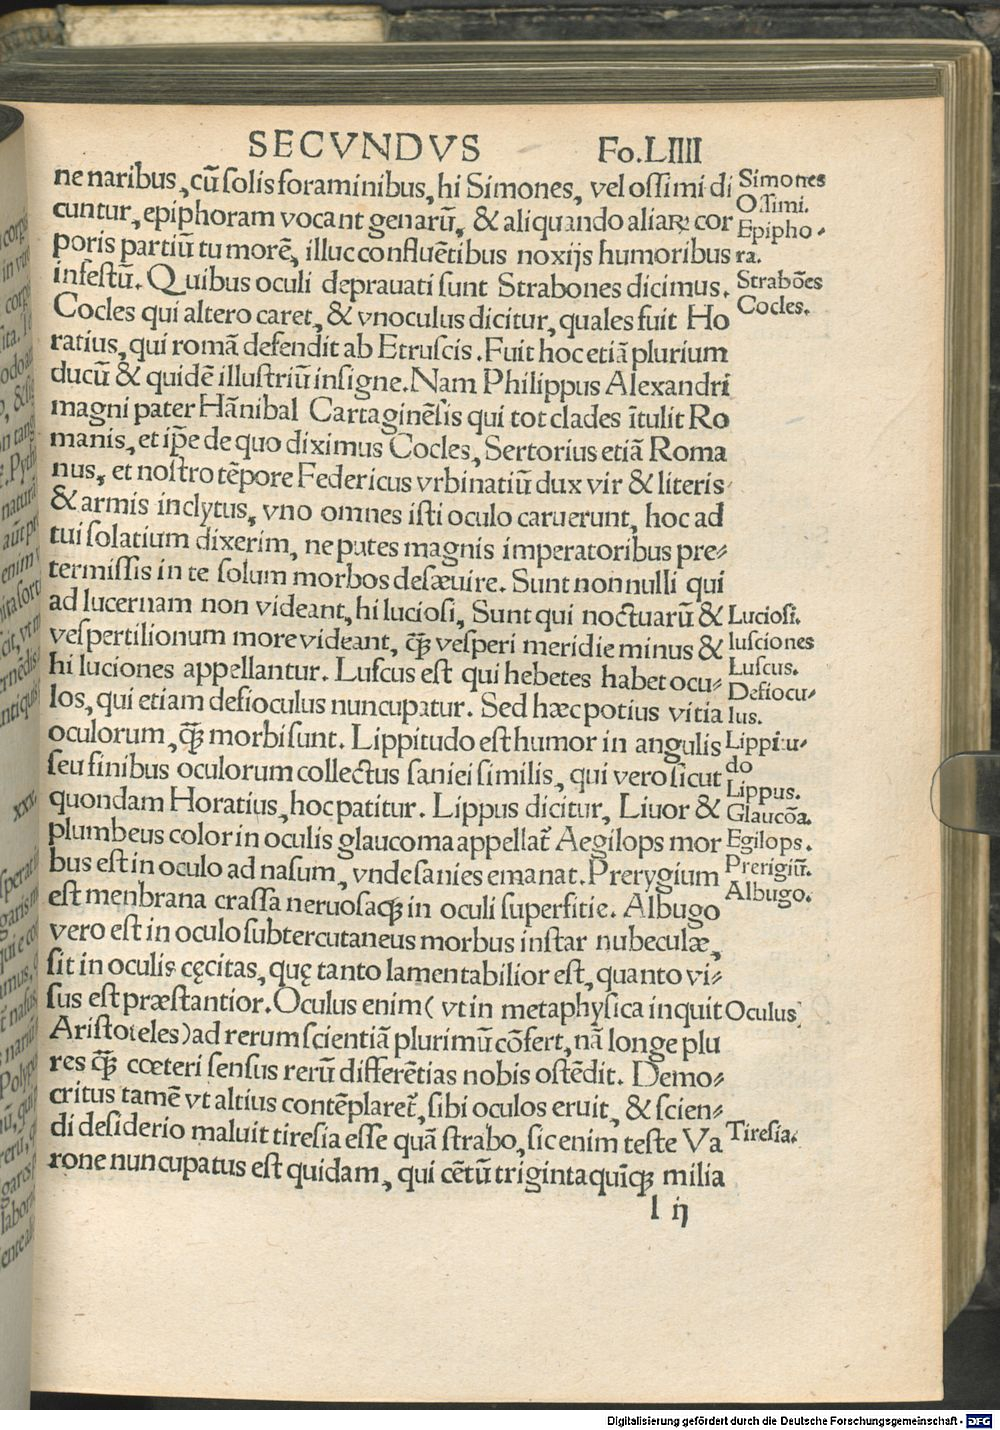 SECVNDVS Fo.LIIII
ne naribus, cũ solis foraminibus, hi Simones, vel ossimi di
cuntur, epiphoram vocant genarũ, & aliquando aliaꝝ cor
poris partiũ tumorẽ, illuc confluẽtibus noxijs humoribus
infestũ. Quibus oculi deprauati sunt Strabones dicimus.
Cocles qui altero caret, & vnoculus dicitur, quales fuit Ho
ratius, qui romã defendit ab Etruscis. Fuit hoc etiã plurium
ducũ & quidẽ illustriũ insigne. Nam Philippus Alexandri
magni pater Hãnibal Cartaginẽsis qui tot clades ĩtulit Ro
manis, et ip̃e de quo diximus Cocles, Sertorius etiã Roma
nus, et nostro tẽpore Federicus vrbinatiũ dux vir & literis
& armis inclytus, vno omnes isti oculo caruerunt, hoc ad
tui solatium dixerim, ne putes magnis imperatoribus pre⸗
termissis in te solum morbos desæuire. Sunt nonnulli qui
ad lucernam non videant, hi luciosi, Sunt qui noctuarũ &
vespertilionum more videant, q̃ꝫ vesperi meridie minus &
hi luciones appellantur. Luscus est qui hebetes habet ocu⸗
los, qui etiam defioculus nuncupatur. Sed hæc potius vitia
oculorum, q̃ꝫ morbi sunt. Lippitudo est humor in angulis
seu finibus oculorum collectus saniei similis, qui vero sicut
quondam Horatius, hoc patitur. Lippus dicitur, Liuor &
plumbeus color in oculis glaucoma appellat᷑ Aegilops mor
bus est in oculo ad nasum, vnde sanies emanat. Prerygium
est menbrana crassa neruosaqꝫ in oculi superfitie. Albugo
vero est in oculo subtercutaneus morbus instar nubeculæ,
sit in oculis cęcitas, quę tanto lamentabilior est, quanto vi⸗
sus est præstantior. Oculus enim ( vt in metaphysica inquit
Aristoteles) ad rerum scientiã plurimũ cõfert, nã longe plu
res q̃ꝫ cœteri sensus rerũ differẽtias nobis ostẽdit. Demo⸗
critus tamẽ vt altius contẽplaret᷑, sibi oculos eruit, & scien⸗
di desiderio maluit tiresia esse quã strabo, sic enim teste Va
rone nuncupatus est quidam, qui cẽtũ triginta quĩqꝫ milia
l ij
Simones
Ossimi.
Epipho⸗
ra.
Strabões
Cocles.
Luciosi.
lusciones
Luscus.
Defiocu⸗
lus.
Lippitu⸗
do
Lippus.
Glaucõa.
Egilops.
Prerigiũ.
Albugo.
Oculus
Tiresia.
Digitalisierung gefördert durch die Deutsche Forschungsgemeinschaft - DFG